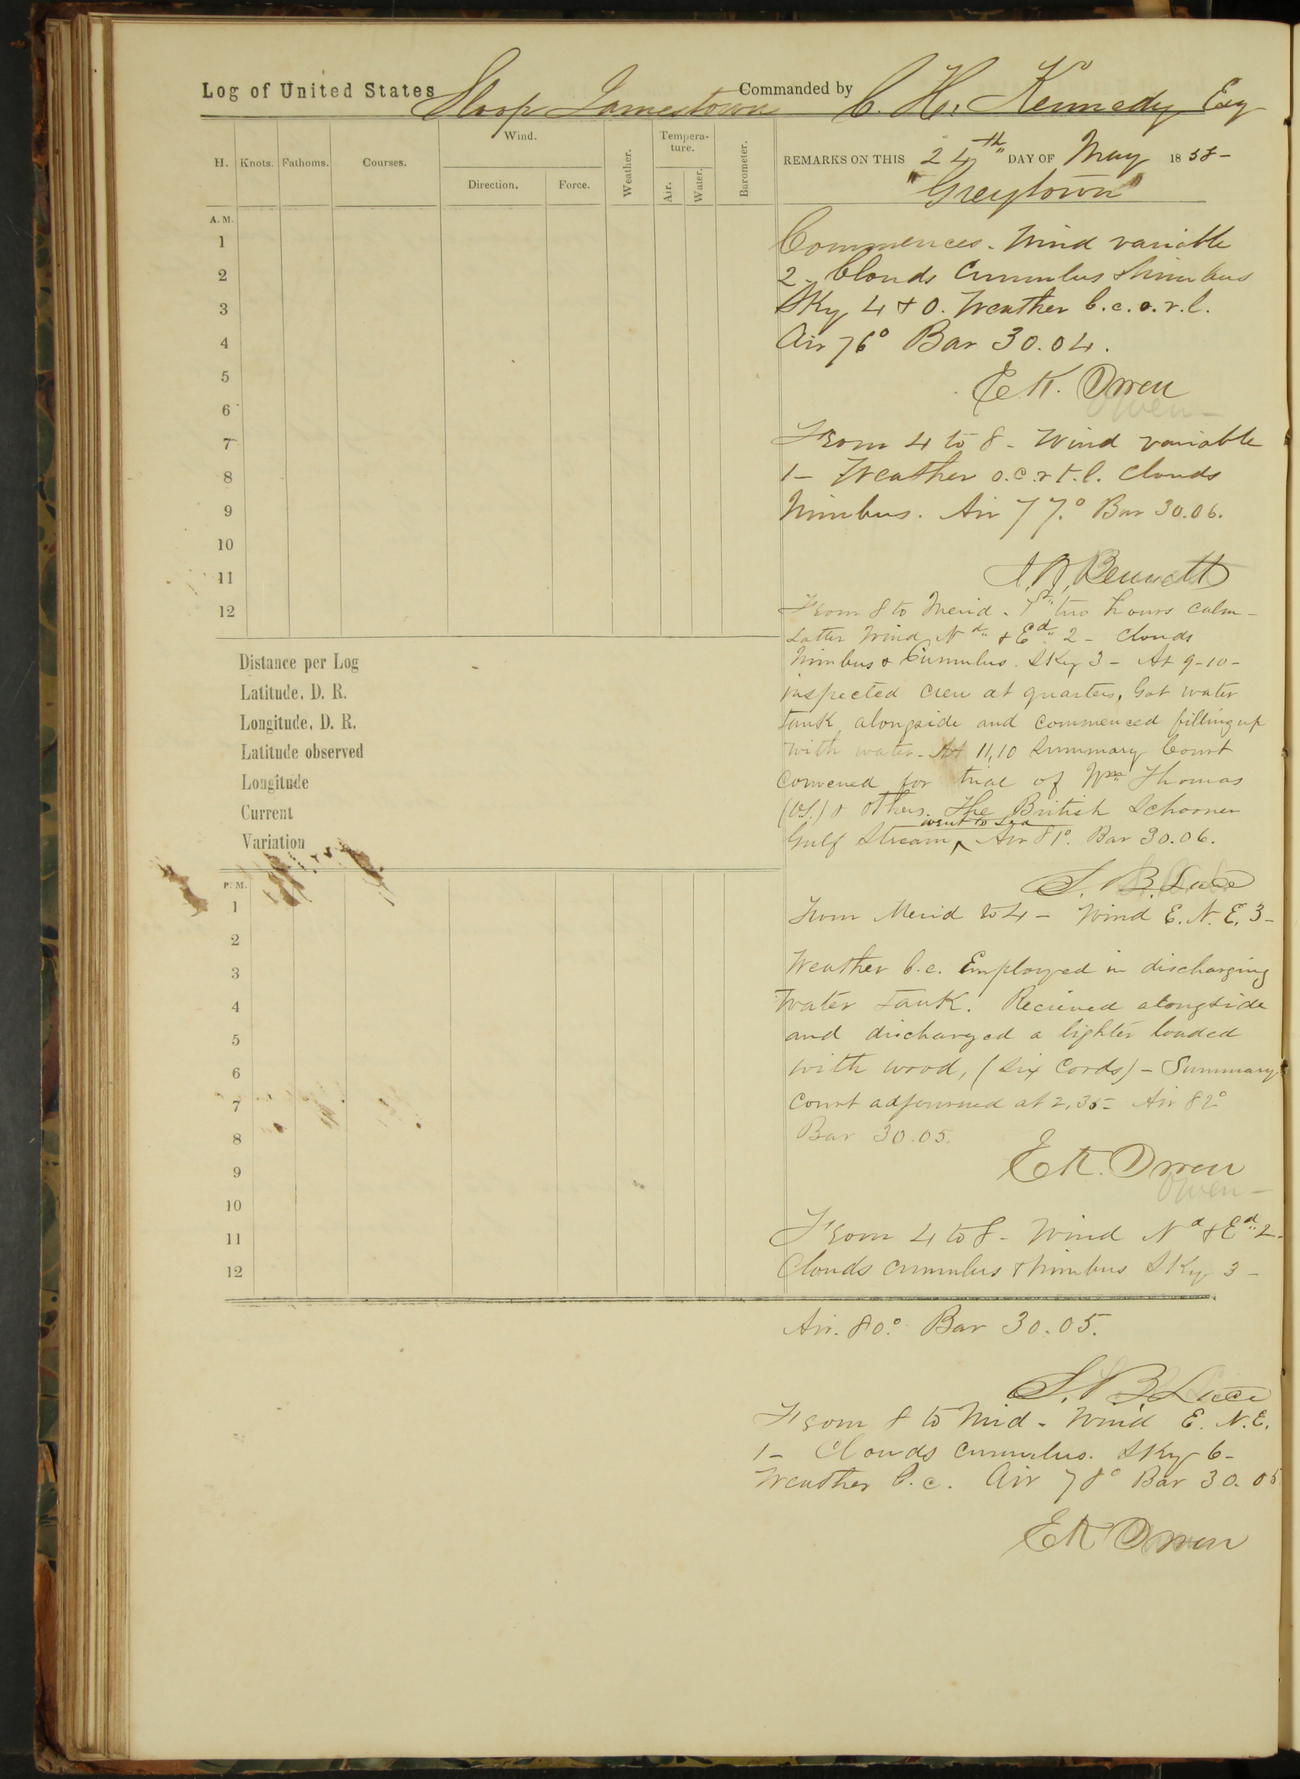 Log of United States Sloop Jamestown Commanded by C. H. Kennedy Esq
H. Knots. Fathoms. Courses. Wind. Direction. Force. Weather. Tempera-ture. Air. Water. Barometer.
REMARKS ON THIS 24th DAY OF May 1858-
"Greytown"
A. M.
1
2
3
4
5
6
7
8
9
10
11
12
Commences. Wind variable
2- Clouds Cumulus & Nimbus
Sky 4 & 0. Weather b.c.o.r.l.
Air 76° Bar 30.04.
E K. Owen
Owen-
From 4 to 8- Wind variable
1- Weather o.c.r.t.l. Clouds
Nimbus. Air 77.° Bar 30.06.
Bennett
From 8 to Merid. 1st two hours calm-
Latter Wind Nd & Ed 2- Clouds
Nimbus & Cumulus. Sky 3- At 9-10-
inspected crew at quarters, Got water
tank alongside and commenced filling up
with water. At 11,10 Summary Court
convened for trial of Wm Thomas
& others. The British Schooner
Gulf Stream went to sea Air 81° Bar 30.06.
S. B. Luce
Distance per Log
Latitude, D. R.
Longitude, D. R.
Latitude observed
Longitude
Current
Variation
P. M.
1
2
3
4
5
6
7
8
9
10
11
12
From Merid to 4- Wind E. N. E, 3-
Weather b.c. Employed in discharging
Water tank. Recieved alongside
and discharged a lighter loaded
with wood, (Six Cords)- Summary
Court adjourned at 2,35- Air 82°
Bar 30.05.
E K. Owen
Owen-
From 4 to 8- Wind Nd & Ed 2-
Clouds cumulus & Nimbus Sky 3-
Air. 80.° Bar 30.05.
S. B. Luce
From 8 to Mid- Wind E. N.E.
1- Clouds cumulus. Sky 6-
Weather b.c. Air 78° Bar 30.05
E K Owen